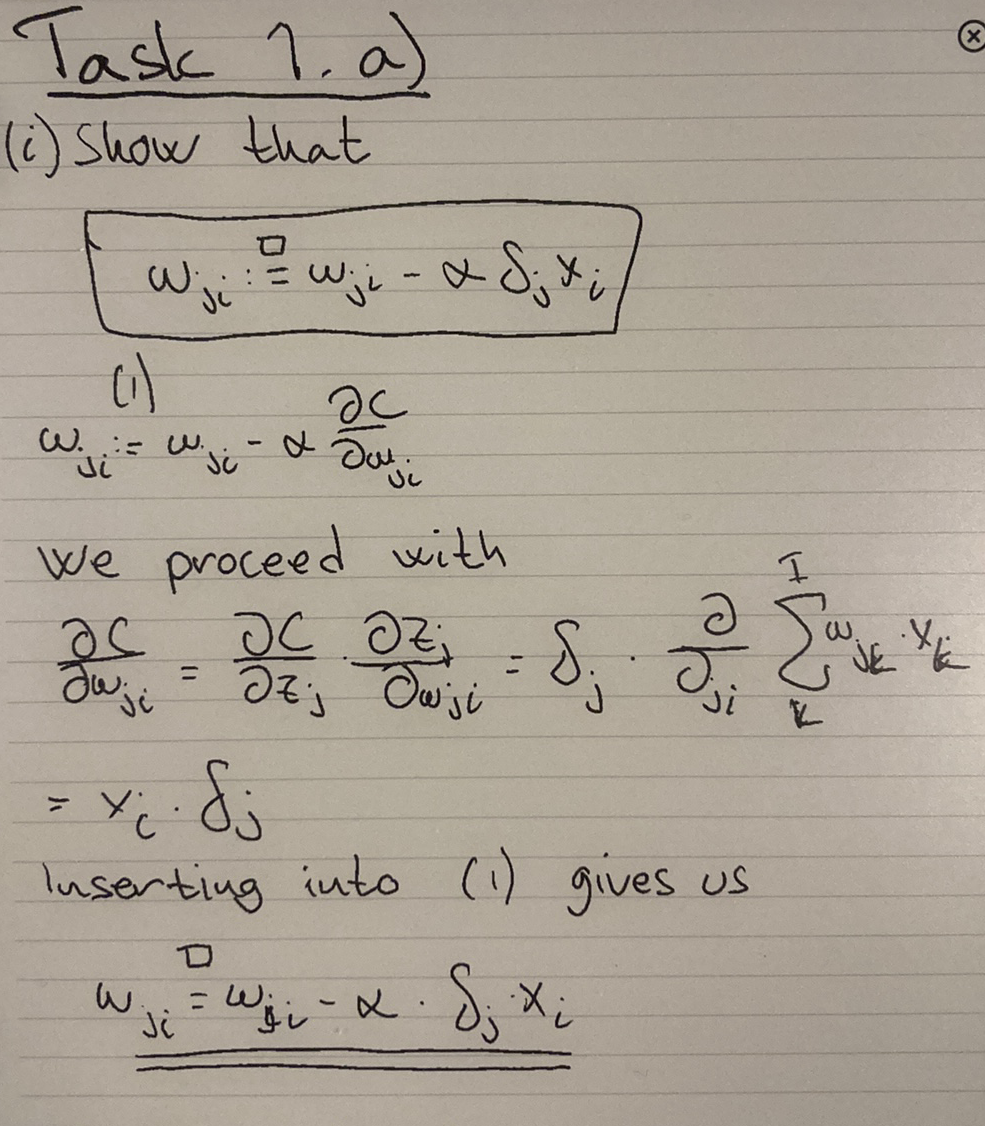 Task 1. a)
(i) Show that
□
w_ji := w_ji - α δ_j x_i
(1)
w_ji := w_ji - α ∂C/∂w_ji
We proceed with
∂C/∂w_ji = ∂C/∂z_j · ∂z_j/∂w_ji = δ_j · ∂/∂_ji Σ_k^I w_jk · x_k
= x_i · δ_j
Inserting into (1) gives us
□
w_ji = w_ji - α · δ_j · x_i